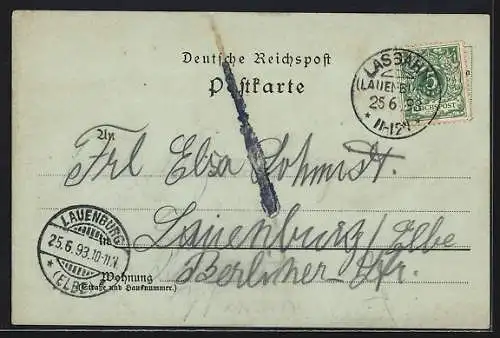 Deutsche Reichspost
Postkarte
LASSAHN
(LAUENB
25 6 93
* 11-12V
5
REICHSPOST
An
Frl Elsa Schmidt.
LAUENBURG
25.6.93.10-11.V
* (ELBE)
in Lauenburg/Elbe
Berliner Str.
Wohnung
(Straße und Hausnummer.)